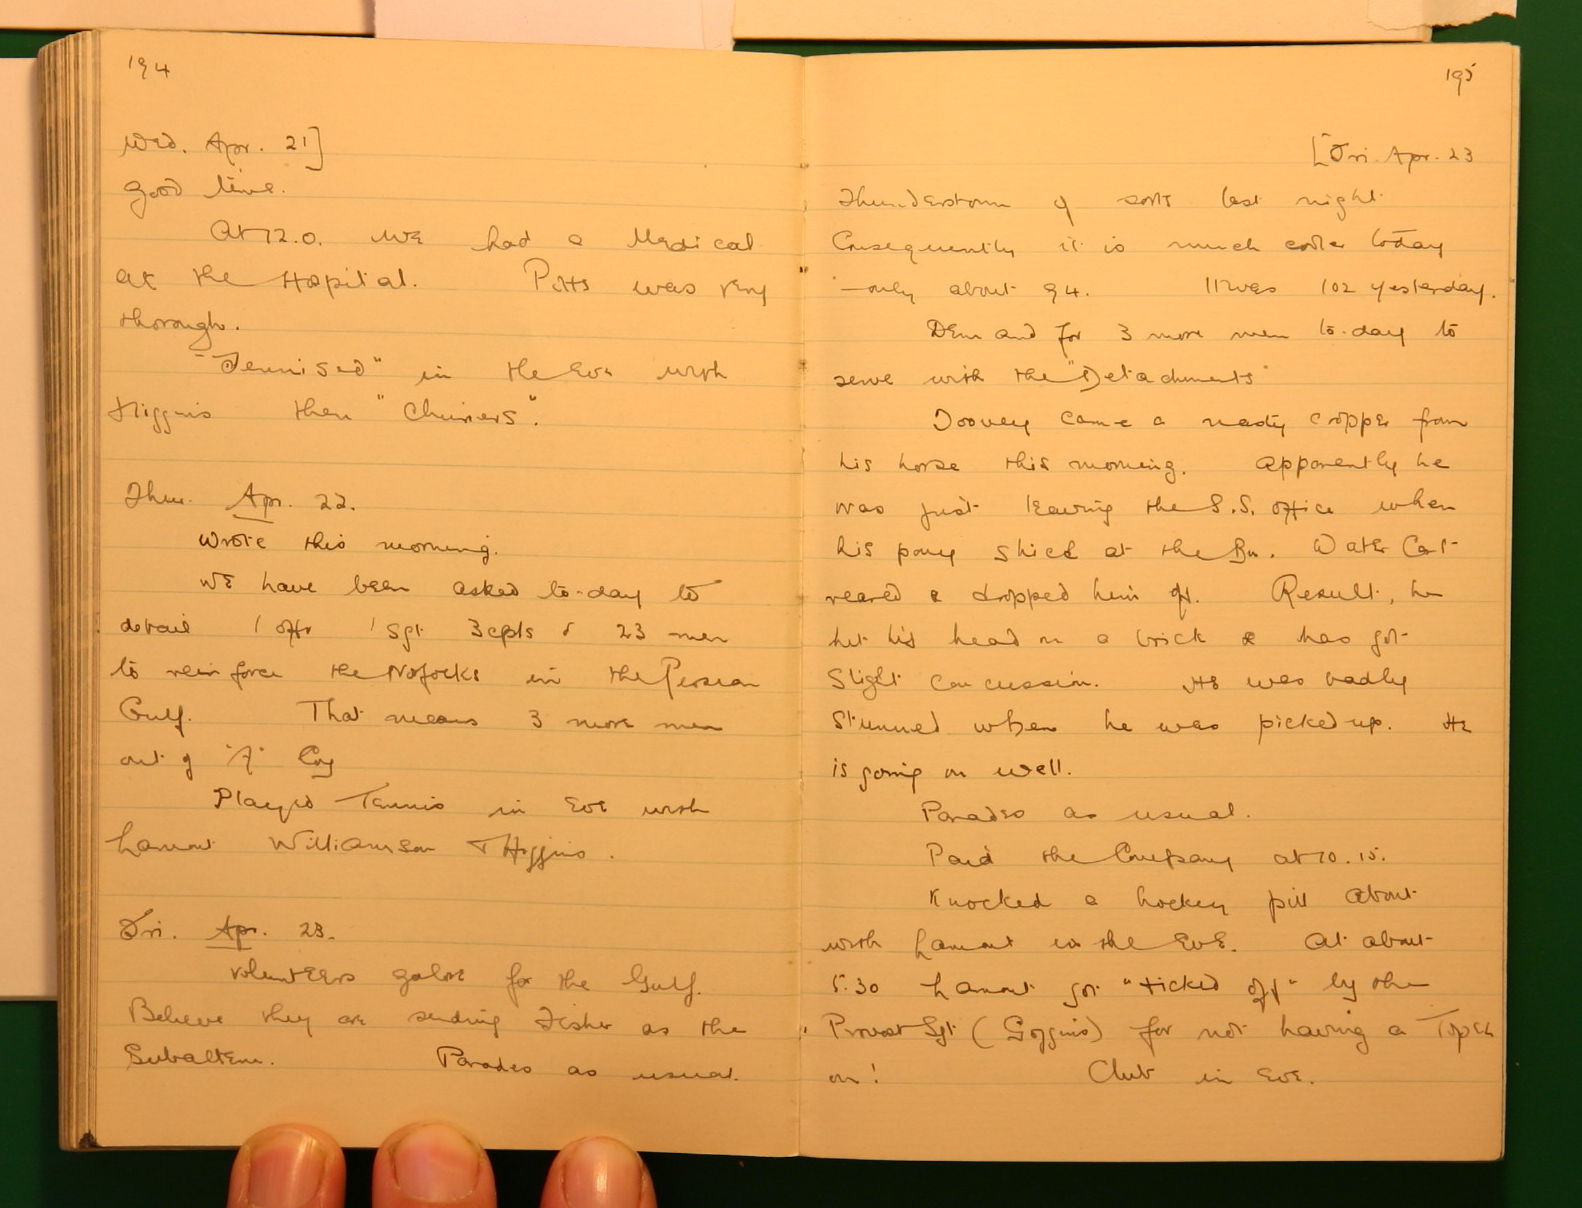 194
Wed. Apr. 21]
good time.
At 12.0. we had a Medical
at the Hospital. Pitts was very
thorough.
"Tennised" in the Eve with
Higgins then "Chimers".
Thur. Apr. 22.
Wrote this morning.
We have been asked to-day to
detail 1 offr 1 Sgt 3 cpls & 23 men
to reinforce the Norfolks in the Persian
Gulf. That means 3 more men
out of "A" Coy
Played Tennis in Eve with
Lamont Williamson & Higgins.
Fri. Apr. 23.
Volunteers galore for the Gulf.
Believe they are sending Fisher as the
Subaltern. Parades as usual.
195
[Fri. Apr. 23
Thunderstorm of sorts last night
Consequently it is much cooler today
— only about 94. It was 102 yesterday.
Demand for 3 more men to-day to
serve with the "Detachments"
Toovey came a nasty cropper from
his horse this morning. Apparently he
was just leaving the S.S. office when
his pony shied at the Bn. Water Cart
reared & dropped him off. Result, he
hit his head on a brick & has got
slight concussion. He was badly
stunned when he was picked up. He
is going on well.
Parades as usual.
Paid the Company at 10.15.
Knocked a hockey pill about
with Lamont in the Eve. At about
5.30 Lamont got "ticked off" by the
Provost Sgt (Goggins) for not having a Topeh
on! Club in Eve.